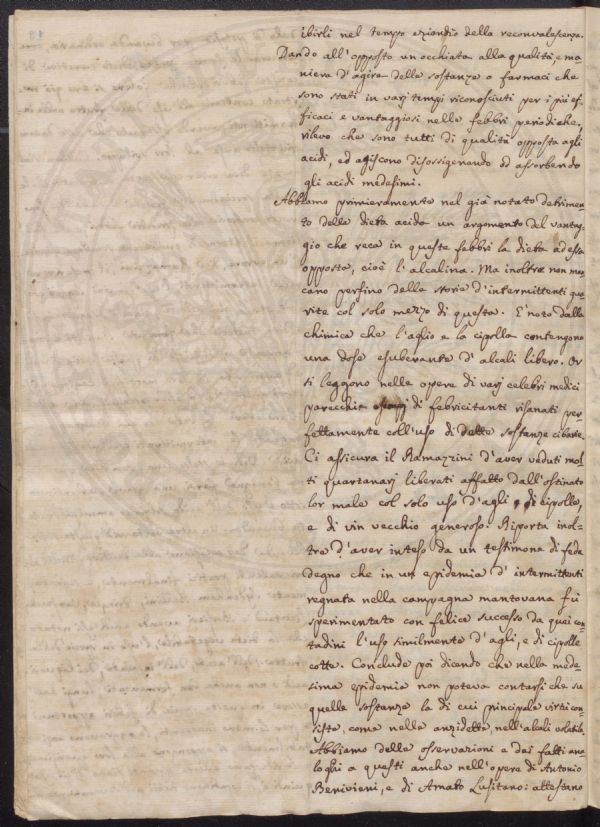 ibirli nel tempo eziandio della reconvalescenza.
Dando all'opposto un occhiata alla qualità, e ma
niera d'agire delle sostanze o farmaci che
sono stati in varj tempi riconosciuti per i più ef
ficaci e vantaggiosi nelle febbri periodiche,
rilevo che sono tutti di qualità opposta agli
acidi, ed agiscono disossigenando od assorbendo
gli acidi medesimi.
Abbiamo primieramente nel già notato detrimen
to della dieta acida un argomento del vantag
gio che reca in queste febbri la dieta ad essa
opposta, cioè l'alcalina. Ma inoltre non man
cano perfino delle storie d'intermittenti gua
rite col solo mezzo di questa. E' noto dalla
chimica che l'aglio e la cipolla contengono
una dose esuberante d'alcali libero. Or
si leggono nelle opere di varj celebri medici
parecchie di febricitanti risanati per
fettamente coll'uso di dette sostanze cibarie.
Ci assicura il Ramazzini d'aver veduti mol
ti quartanarj liberati affatto dall'ostinato
lor male col solo uso d'agli e di cipolle,
e di vin vecchio generoso. Riporta inol=
tre d'aver inteso da un testimone di fede
degno che in un epidemia d'intermittenti
regnata nella campagna mantovana fù
sperimentato con felice successo da quei con
tadini l'uso similmente d'agli, e di cipolle
cotte. Conclude poi dicendo che nella mede=
sima epidemia non poteva contarsi che su
quelle sostanze la di cui principale virtù con
siste, come nelle anzidette, nell'alcali volatile.
Abbiamo delle osservazioni e dei fatti ana
loghi a questi anche nell'opere di Antonio
Benivieni, e di Amato Lusitano: attestano